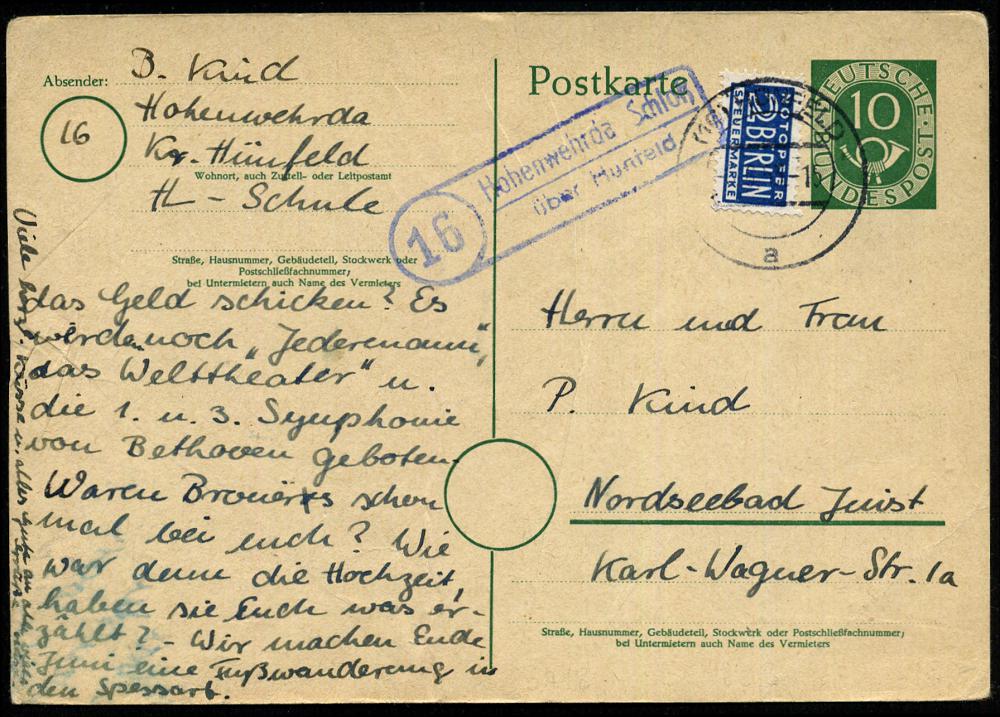 Absender: B. Kind
16
Hohenwehrda
Kr. Hünfeld
Wohnort, auch Zustell- oder Leitpostamt
HL - Schule
Straße, Hausnummer, Gebäudeteil, Stockwerk oder
Postschließfachnummer;
bei Untermietern auch Name des Vermieters
das Geld schicken? Es
werden noch „Jedermann",
das Welttheater" u.
die 1. u. 3. Symphonie
von Bethoven geboten.
Waren schon
mal bei euch? Wie
war denn die Hochzeit,
haben sie Euch was er-
zählt? - Wir machen Ende
Juni eine Fußwanderung in
den Spessart.
Viele herzl. Küsse u. alles Gute an alle
Postkarte
16
Hohenwehrda Schloß
über Hünfeld
NOTOPFER
2 BERLIN
STEUERMARKE
HÜNFELD
a
DEUTSCHE
10
BUNDESPOST
Herrn und Frau
P. Kind
Nordseebad Juist
Karl-Wagner-Str. 1a
Straße, Hausnummer, Gebäudeteil, Stockwerk oder Postschließfachnummer;
bei Untermietern auch Name des Vermieters